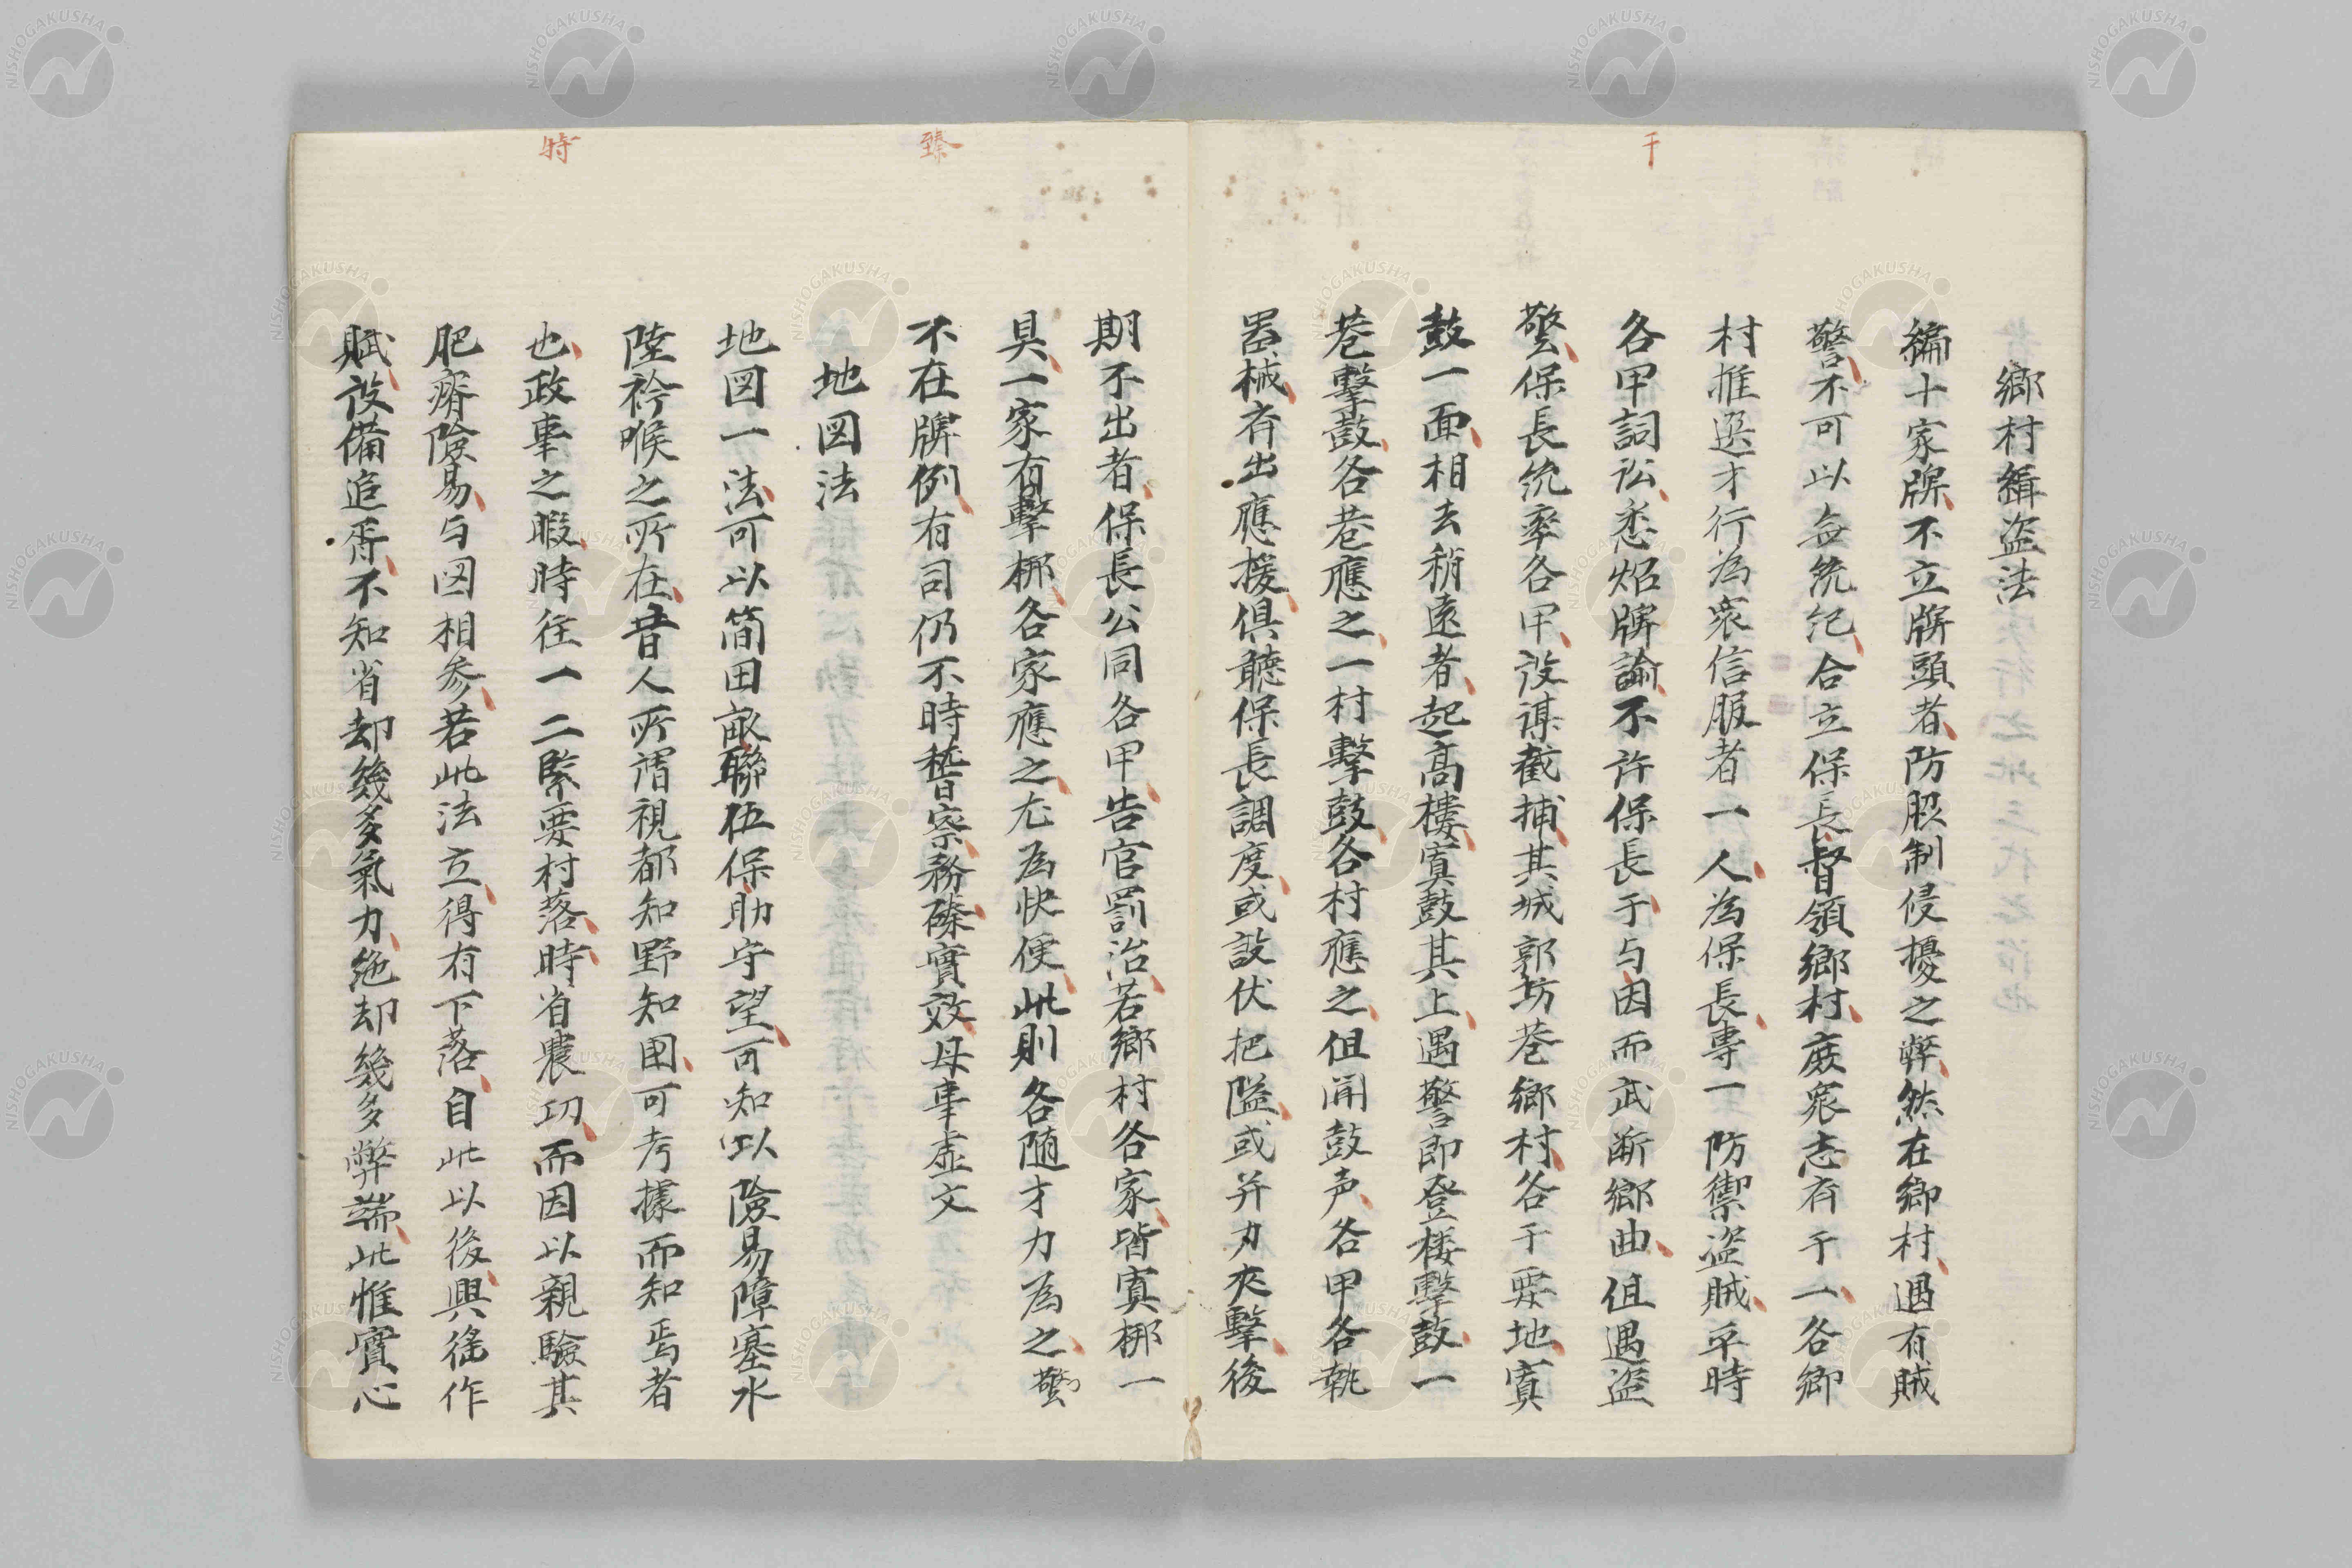 鄉村緝盗法
編十家牌、不立牌頭者、防脅制侵擾之弊、然在鄉村、遇有賊
警、不可以無統紀、合立保長督領鄉村、庶衆志齊于一、各鄉
村推選才行為衆信服者一人、為保長、專一防禦盗賊、平時
各甲詞訟、悉炤牌諭、不許保長于与、因而武断鄉曲、但遇盗
警、保長統率各甲、設謀截捕、其城郭坊巷鄉村、各于要地、寘
鼓一面、相去稍遠者、起高樓、寘鼓其上、遇警即登楼擊鼓、一
巷擊鼓、各巷應之、一村擊鼓、各村應之、但聞鼓声、各甲各執
器械、齊出應援、俱聽保長調度、或設伏把隘、或并刃夾擊、後
期不出者、保長公同各甲、告官罰治、若鄉村各家、皆寘梆一
具、一家有擊梆、各家應之、尤為快便、此則各随才力為之、警
不在牌例、有司仍不時稽察、務磔實效、毋事虚文
地図法
地図一法、可以簡田畝聯伍保助守望、可知以險易障塞水
陸衿喉之所在、昔人所謂視都知野知国、可考據而知焉者
也、政事之暇、時往一二緊要村落、時省農功、而因以親驗其
肥瘠險易、与図相参、若此法立、得有下落、自此以後、興徭作
賦、設備追胥、不知省却幾多氣力、絶却幾多弊端、此惟實心
千
臻
特
NISHOGAKUSHA